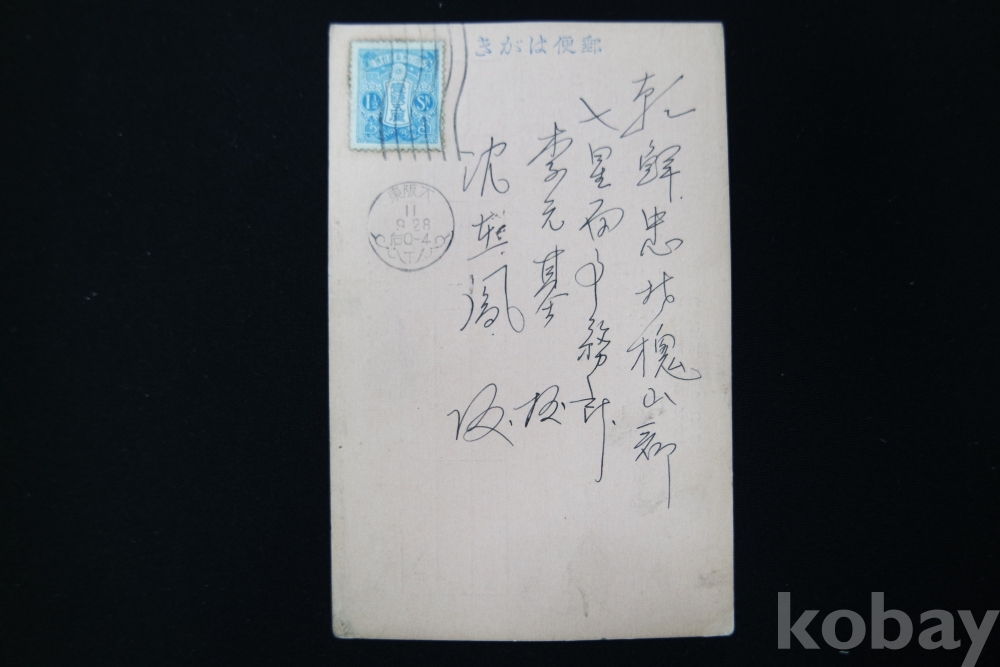 郵便はがき
朝鮮忠北槐山郡
七星面事務所
李元基 様
沈英鳳 様
1½ Sn
大阪東
11
9.28
后0-4
kobay